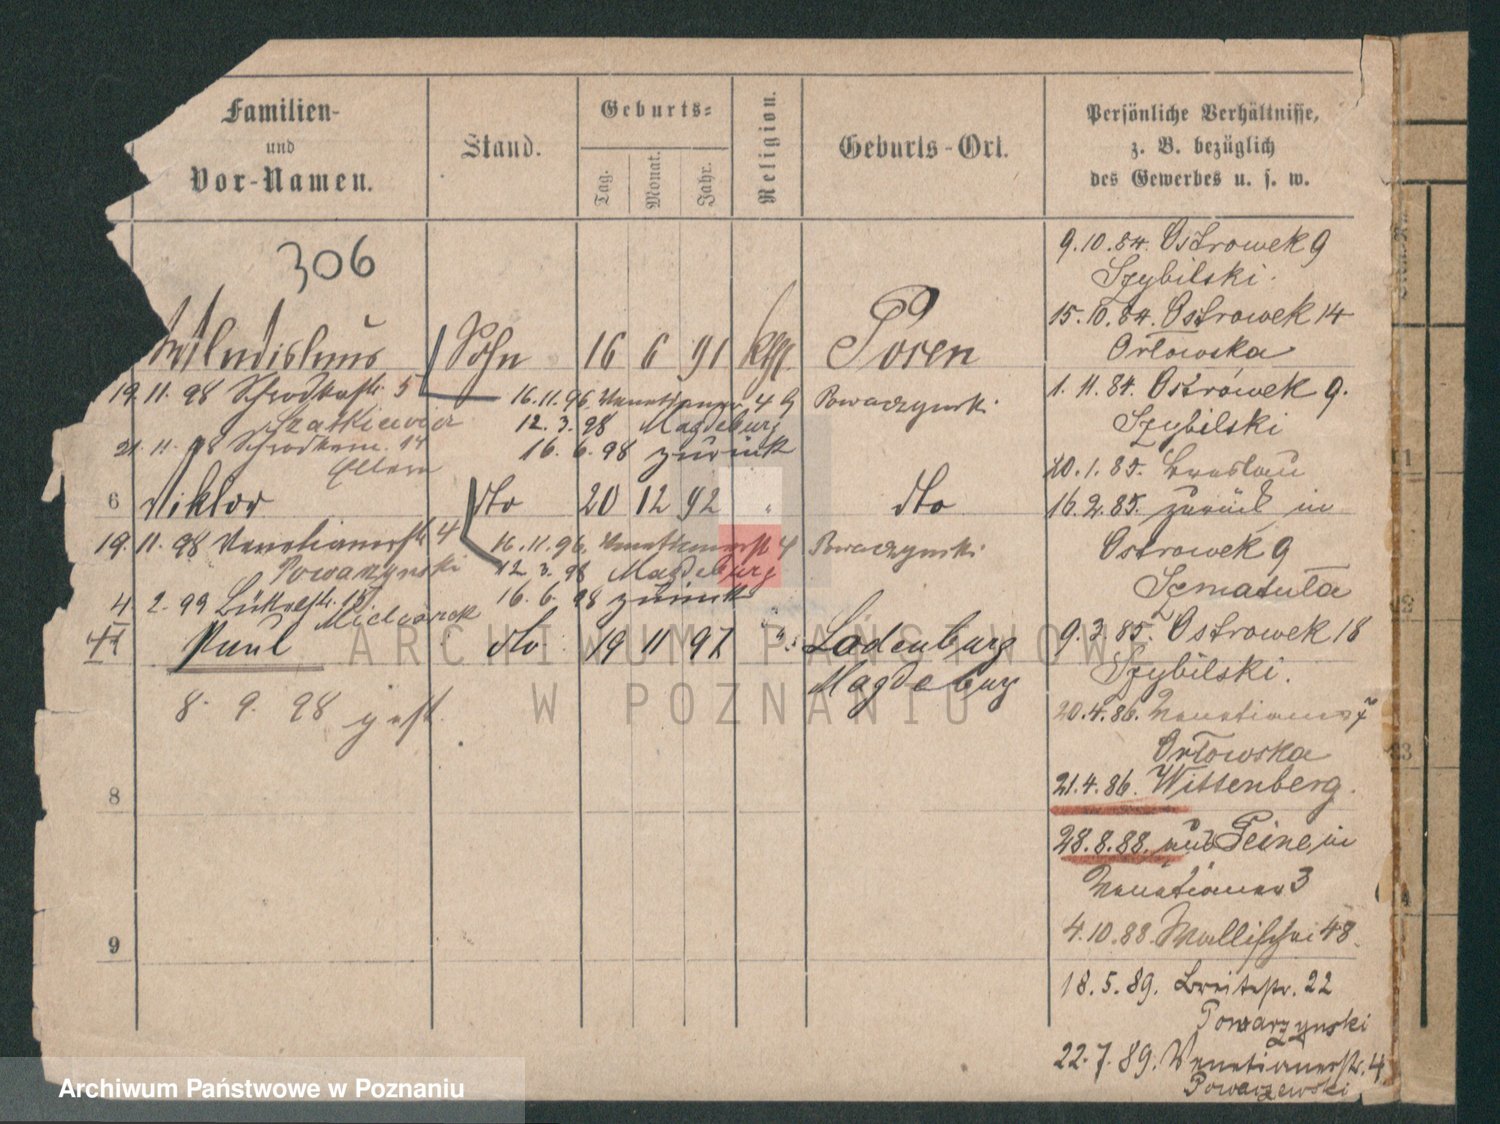 Familien-
und
Vor-Namen.
Stand.
Geburts-
Tag.
Monat.
Jahr.
Religion.
Geburts-Ort.
Persönliche Verhältnisse,
z. B. bezüglich
des Gewerbes u. s. w.
306
Wladislaus Sohn 16 6 91 kath. Posen
19.11.98 Schrodkastr. 5
Szatkiewicz
21.11.98 Schrodkam. 14
Eltern
16.11.96. Venetianer 4 Powaczynski
12.3.98 Magdeburg
16.6.98 zurück
6 Viktor dto 20 12 92 " dto
19.11.98 Venetianerstr 4
Powarzynski
4 2.99 Büttelstr. 18
16.11.96. Venetianerst 4 Powaczynski
12.3.98 Magdeburg
16.6.98 zurück
Paul dto 19 11 97 " Ladenburg
Magdeburg
8. 9. 98 gest.
8
9
9.10.84. Ostrowek 9
Szybilski.
15.10.84. Ostrowek 14
Orlowska
1.11.84. Ostrówek 9.
Szybilski
20.1.85. Breslau
16.2.85. zurück in
Ostrowek 9
Szmatuła
9.3.85. Ostrowek 18
Szybilski.
20.4.86. Venetianer 7
Orłowska
21.4.86. Wittenberg.
28.8.88. aus Peine in
Venetianer 3
4.10.88. Wallischei 48.
18.5.89. Breitestr. 22
Powarzynski
22.7.89. Venetianerstr. 4
Powarzewski
ARCHIWUM PAŃSTWOWE
W POZNANIU
Archiwum Państwowe w Poznaniu